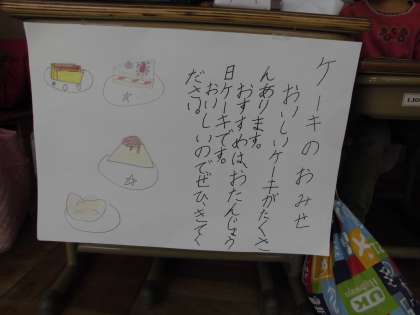 ケーキのおみせ
おいしいケーキがたくさ
んあります。
おすすめは、おたんじょう
日ケーキです。
おいしいのでぜひ、きてく
ださい。